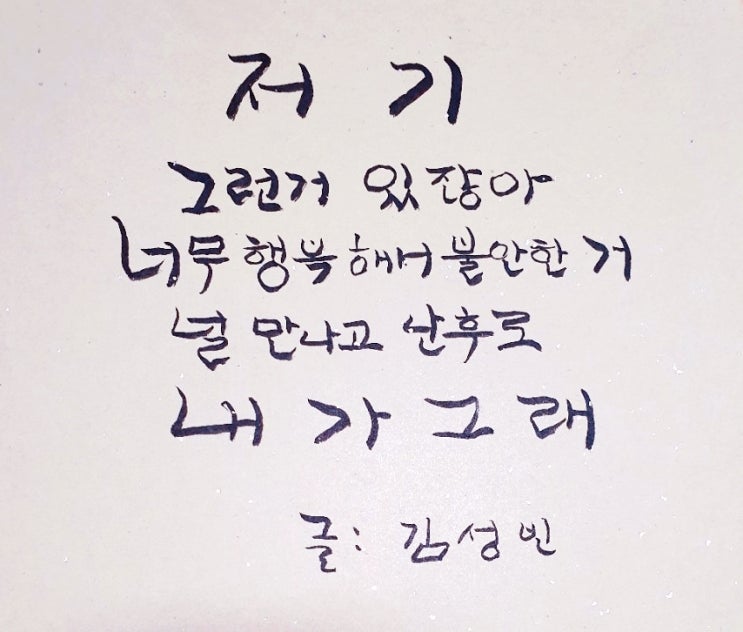 저 기
그런거 있잖아
너무 행복해서 불안한 거
널 만나고 난후로
내가 그래
글: 김성빈